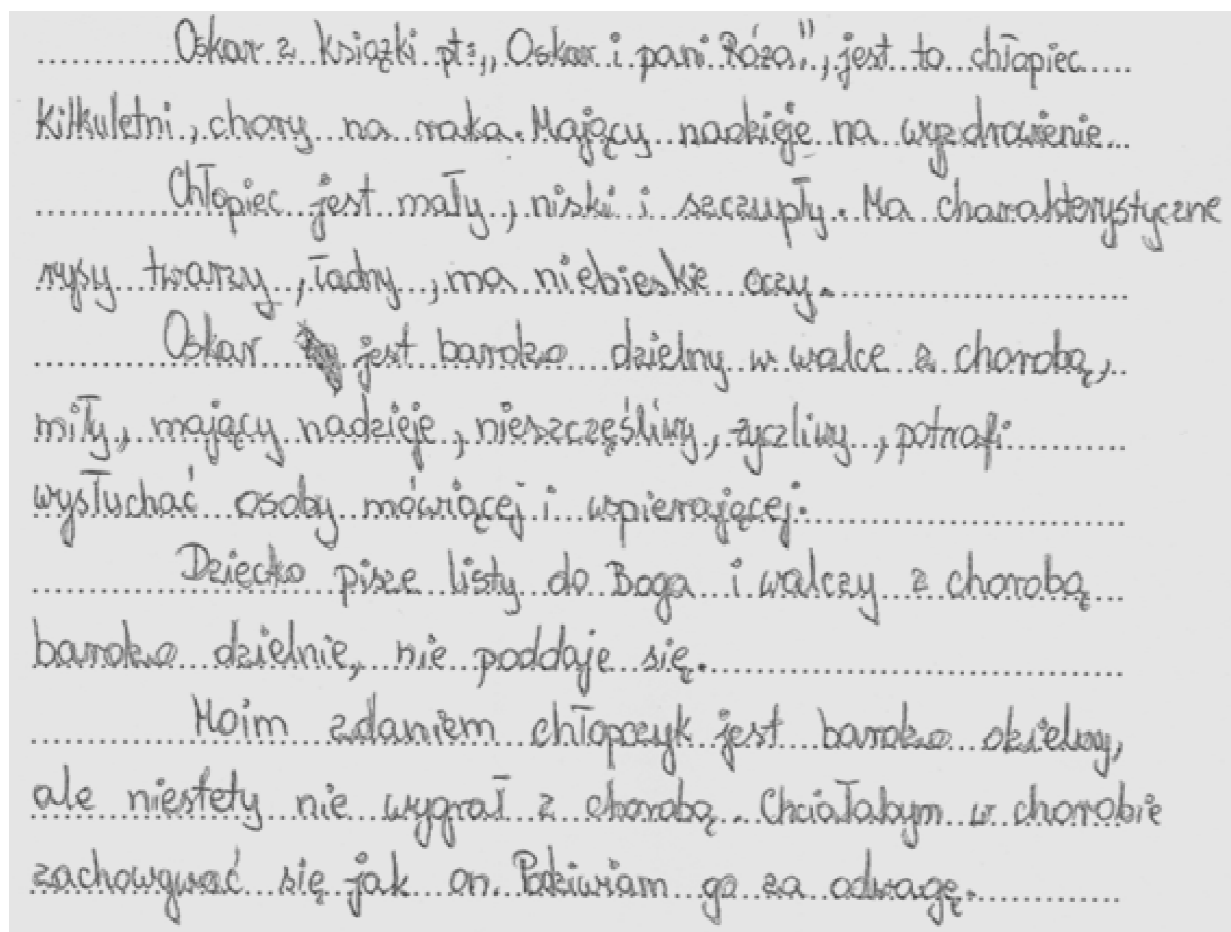 Oskar z książki pt: „Oskar i pani Róża", jest to chłopiec
kilkuletni, chory na raka. Mający nadzieje na wyzdrowienie.
Chłopiec jest mały, niski i szczupły. Ma charakterystyczne
rysy twarzy, ładny, ma niebieskie oczy.
Oskar jest bardzo dzielny w walce z chorobą,
miły, mający nadzieje, nieszczęśliwy, życzliwy, potrafi
wysłuchać osoby mówiącej i wspierającej.
Dziecko pisze listy do Boga i walczy z chorobą
bardzo dzielnie, nie poddaje się.
Moim zdaniem chłopczyk jest bardzo dzielny,
ale niestety nie wygrał z chorobą. Chciałabym w chorobie
zachowywać się jak on. Podziwiam go za odwagę.